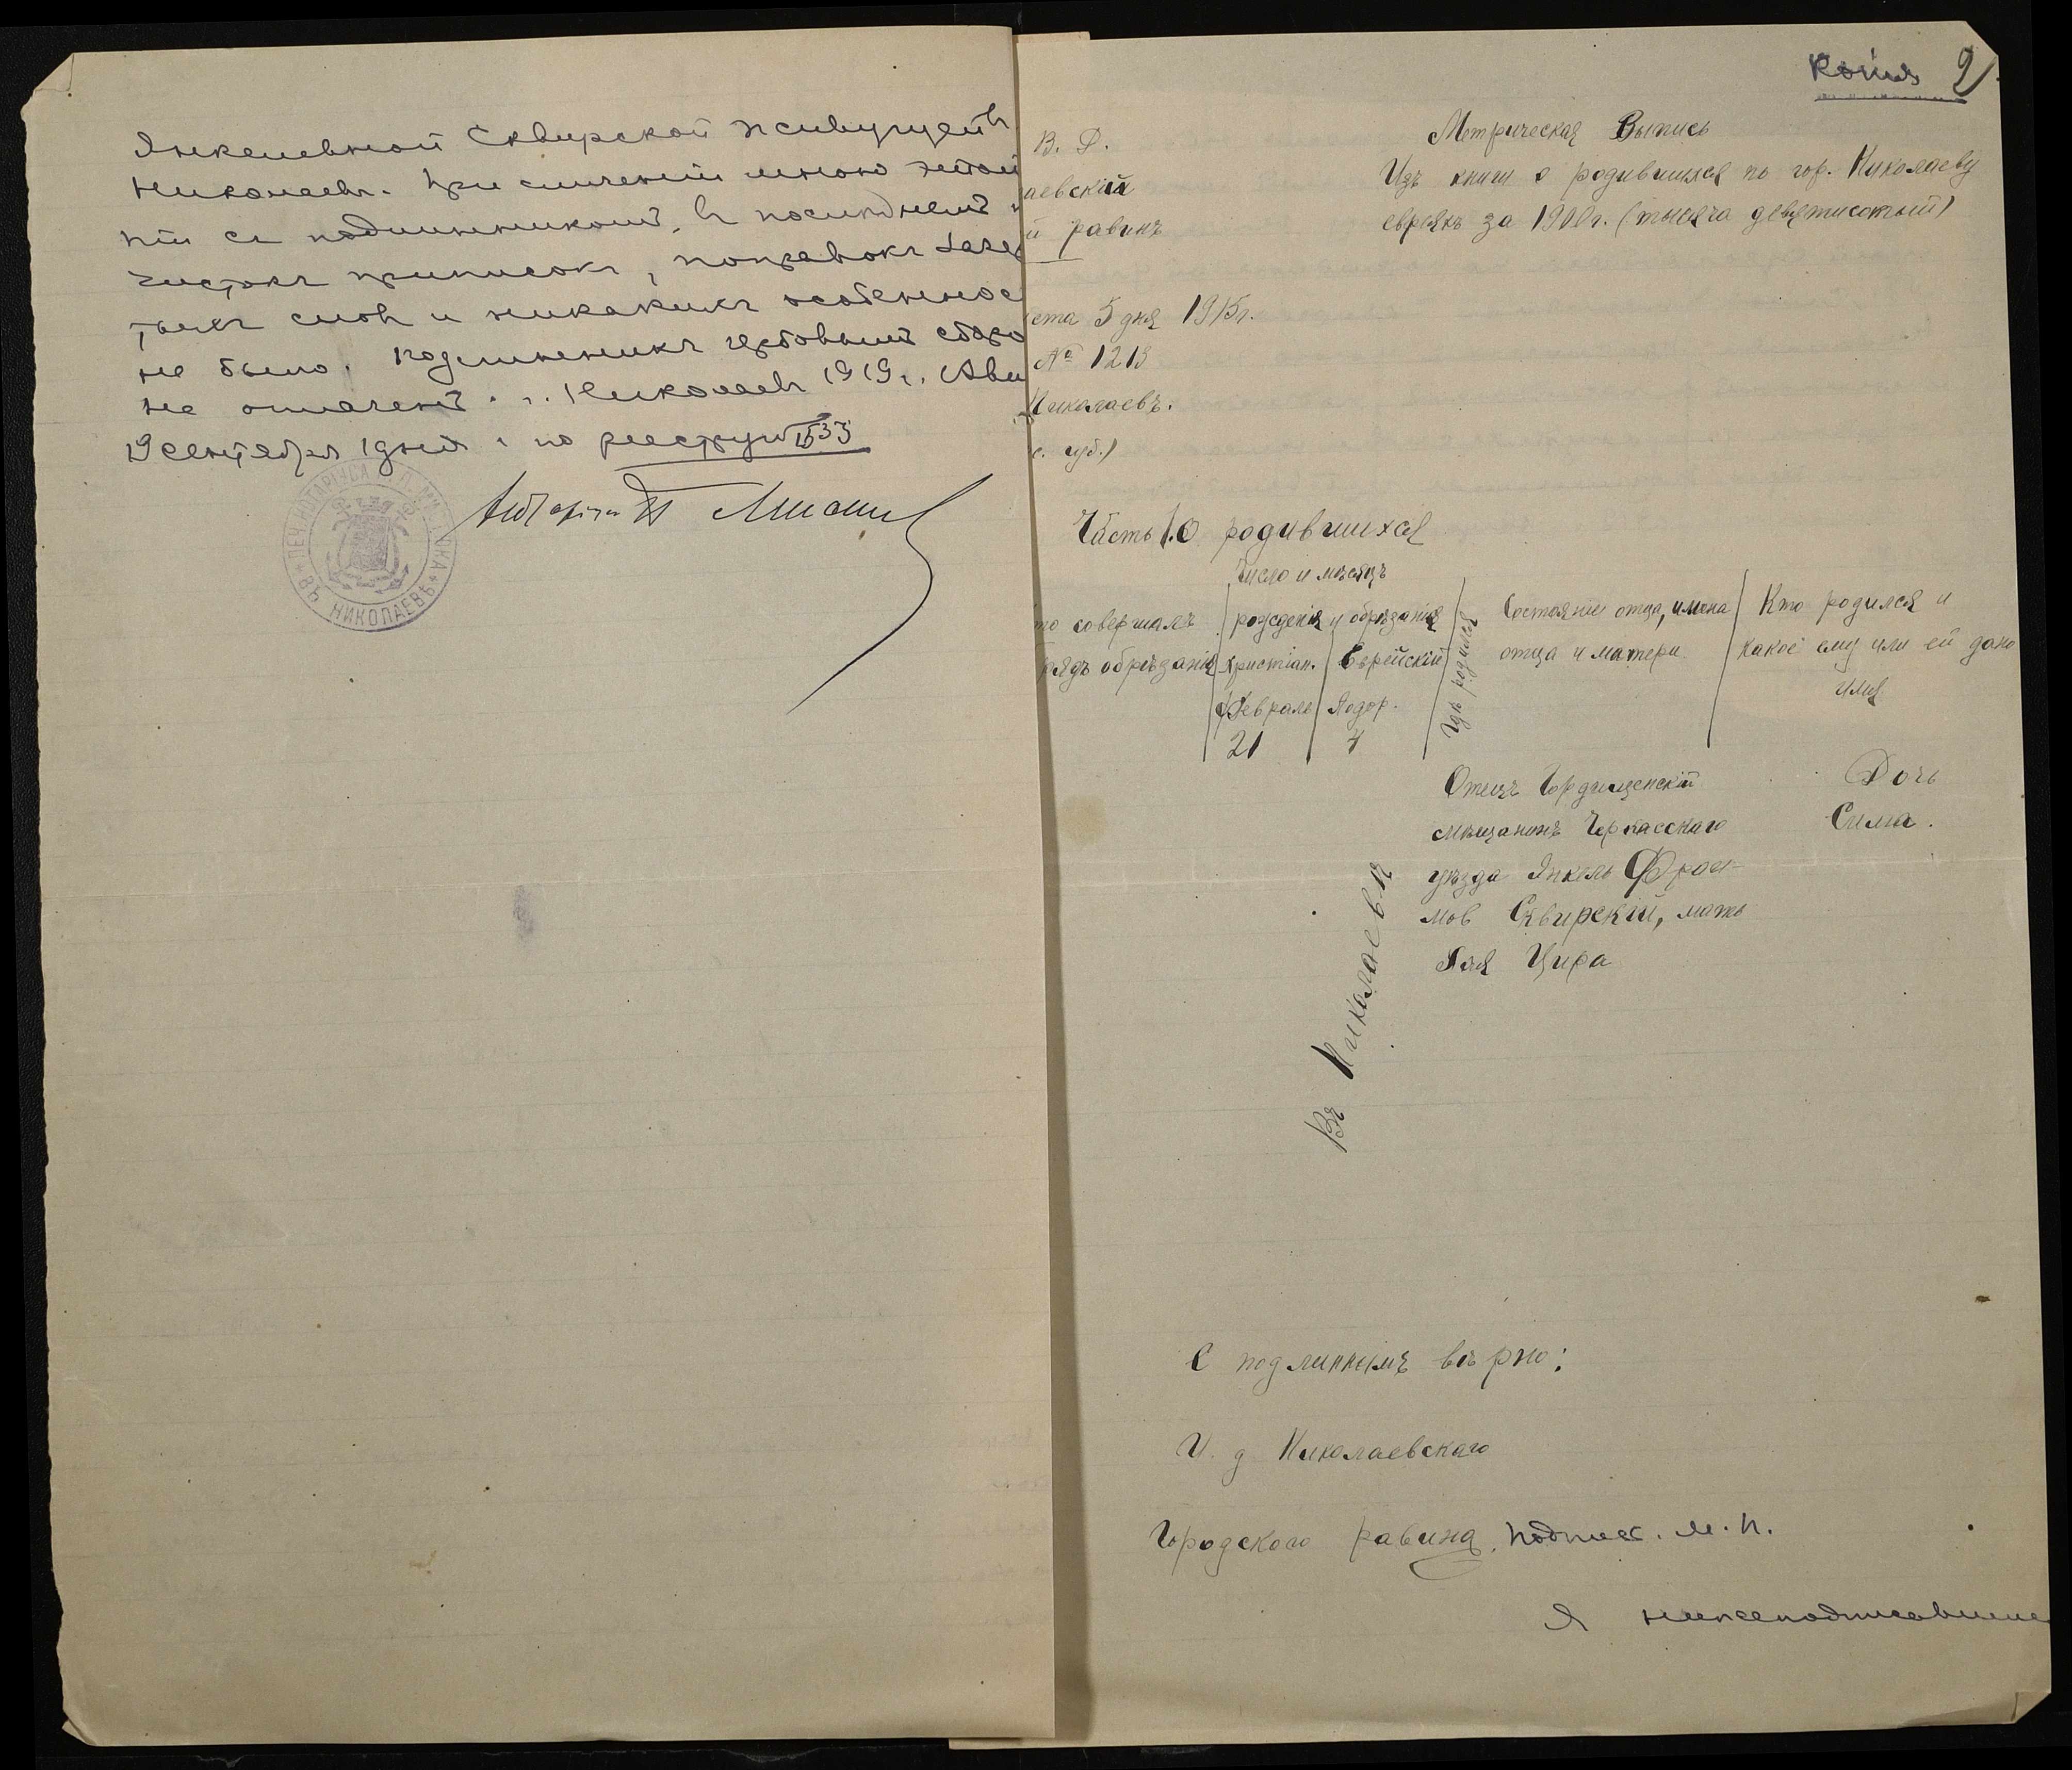 Янкелевной Сквирской живущей в
Николаевѣ. При сличеніи мною этой
піи съ подлинникомъ, въ послѣднемъ
чистокъ приписокъ, поправокъ
тыхъ словъ и никакихъ особенное
не было. Подлинникъ гербовымъ сборо
не оплаченъ. г. Николаевъ 1919 г.
19 Сентября 1 дня. по реестру № 1533
Нотаріусъ
ПЕЧ. НОТАРІУСА
ВЪ НИКОЛАЕВѢ
Копія 2
В. Д.
аевскій
й равинъ
ста 5 дня 1915 г.
№ 1213
Николаевъ.
с. губ.)
Метрическая Выпись
Изъ книги о родившихся по гор. Николаеву
евреяхъ за 1900 г. (тысяча девятисотый)
Часть I. О родившихся
то совершалъ
рядъ обрѣзанія
Число и мѣсяцъ
рожденія и обрѣзанія
Христіан.
Еврейскій
Февраль
Адор.
21
4
Гдѣ родился
Состояніе отца, имена
отца и матери
Кто родился и
какое ему или ей дано
имя
Въ Николаевѣ
Отецъ Городищенскій
мѣщанинъ Черкасскаго
уѣзда Янкель Фрои-
мов Сквирскій, мать
Хая Цира
Дочь
Сима.
С подлиннымъ вѣрно:
И. д Николаевскаго
Городского равина, подпис. М. П.
Я нижеподписавшие